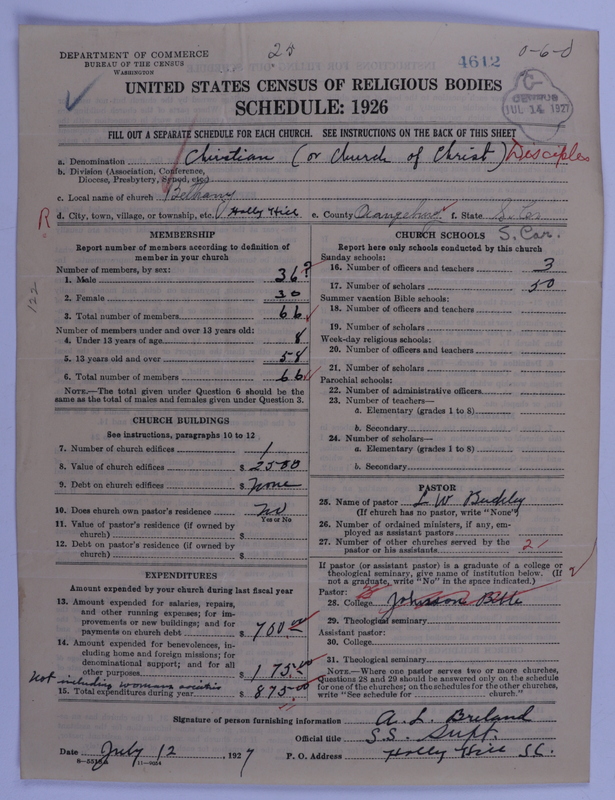 DEPARTMENT OF COMMERCE
BUREAU OF THE CENSUS
WASHINGTON
4612
0-6-0
UNITED STATES CENSUS OF RELIGIOUS BODIES
SCHEDULE: 1926
CENSUS
JUL 14 1927
FILL OUT A SEPARATE SCHEDULE FOR EACH CHURCH. SEE INSTRUCTIONS ON THE BACK OF THIS SHEET
a. Denomination Christian (or Church of Christ) Disciples
b. Division (Association, Conference, Diocese, Presbytery, Synod, etc.)
c. Local name of church Bethany
R d. City, town, village, or township, etc. Holly Hill e. County Orangeburg f. State S. Car
S. Car.
122
MEMBERSHIP
Report number of members according to definition of member in your church
Number of members, by sex:
1. Male 36?
2. Female 30
3. Total number of members 66
Number of members under and over 13 years old:
4. Under 13 years of age 8
5. 13 years old and over 58
6. Total number of members 66
NOTE.—The total given under Question 6 should be the same as the total of males and females given under Question 3.
CHURCH BUILDINGS
See instructions, paragraphs 10 to 12
7. Number of church edifices 1
8. Value of church edifices $ 2500
9. Debt on church edifices $ none
10. Does church own pastor's residence no
Yes or No
11. Value of pastor's residence (if owned by church) $
12. Debt on pastor's residence (if owned by church) $
EXPENDITURES
Amount expended by your church during last fiscal year
13. Amount expended for salaries, repairs, and other running expenses; for improvements or new buildings; and for payments on church debt $ 700.00
14. Amount expended for benevolences, including home and foreign missions; for denominational support; and for all other purposes $ 175.00
not including womans
15. Total expenditures during year $ 875.00
CHURCH SCHOOLS
Report here only schools conducted by this church
Sunday schools:
16. Number of officers and teachers 3
17. Number of scholars 50
Summer vacation Bible schools:
18. Number of officers and teachers
19. Number of scholars
Week-day religious schools:
20. Number of officers and teachers
21. Number of scholars
Parochial schools:
22. Number of administrative officers
23. Number of teachers—
a. Elementary (grades 1 to 8)
b. Secondary
24. Number of scholars—
a. Elementary (grades 1 to 8)
b. Secondary
PASTOR
25. Name of pastor L W Buckley
(If church has no pastor, write "None")
26. Number of ordained ministers, if any, employed as assistant pastors
27. Number of other churches served by the pastor or his assistants 2
If pastor (or assistant pastor) is a graduate of a college or theological seminary, give name of institution below. (If not a graduate, write "No" in the space indicated.)
Pastor:
28. College Johnson Bible
29. Theological seminary
Assistant pastor:
30. College
31. Theological seminary
NOTE.—Where one pastor serves two or more churches, Questions 28 and 29 should be answered only on the schedule for one of the churches; on the schedules for the other churches, write "See schedule for church."
Signature of person furnishing information A. L. Breland
Official title S.S. Supt.
Date July 12, 1927 P. O. Address Holly Hill S.C.